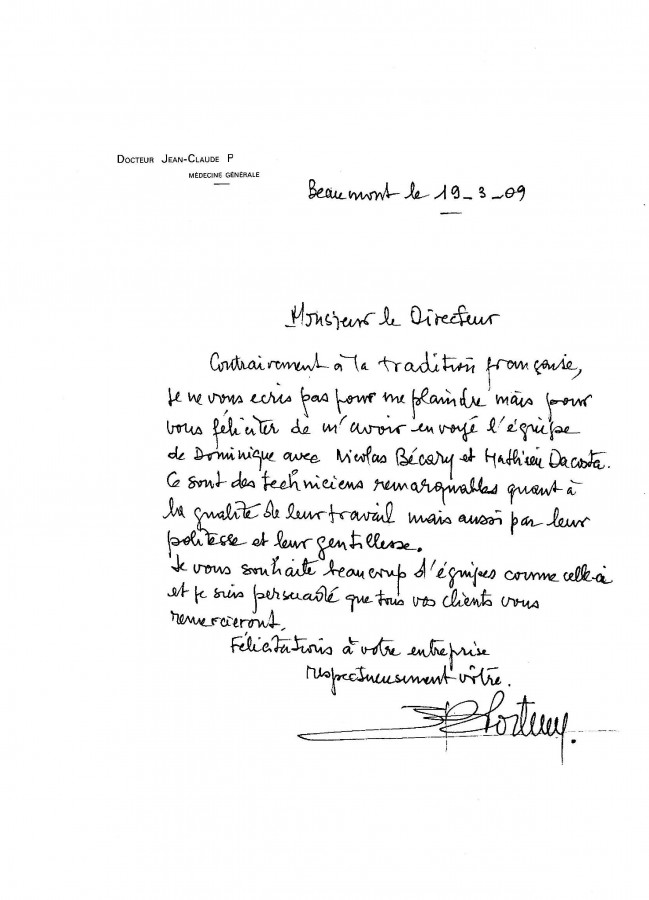 DOCTEUR JEAN-CLAUDE P
MÉDECINE GÉNÉRALE
Beaumont le 19-3-09
Monsieur le Directeur
Contrairement à la tradition française,
je ne vous ecris pas pour me plaindre mais pour
vous féliciter de m'avoir envoyé l'équipe
de Dominique avec Nicolas Bécary et Mathieu Dacosta.
Ce sont des techniciens remarquables quant à
la qualité de leur travail mais aussi par leur
politesse et leur gentillesse.
Je vous souhaite beaucoup d'équipes comme celle-ci
et je suis persuadé que tous vos clients vous
remercieront.
Félicitations à votre entreprise
respectueusement vôtre.